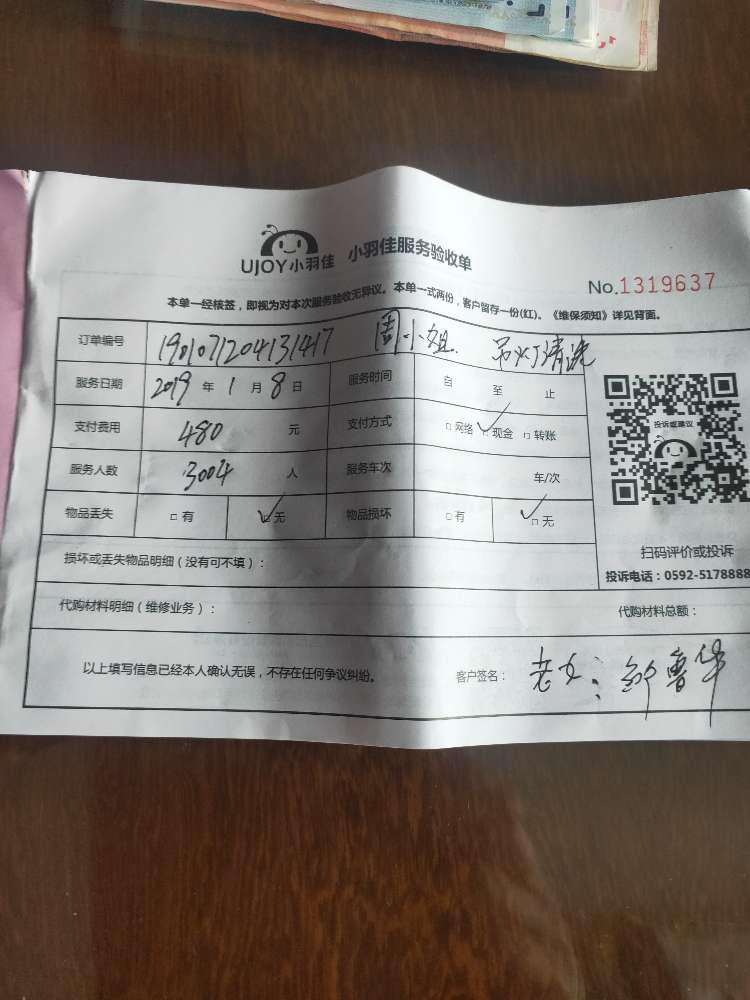 UJOY小羽佳 小羽佳服务验收单
No.1319637
本单一经核签，即视为对本次服务验收无异议。本单一式两份，客户留存一份(红)。《维保须知》详见背面。
订单编号 1901071204131417 周小姐. 吊灯清洗
服务日期 2019 年 1 月 8 日 服务时间 自 至 止
投诉或建议
支付费用 480 元 支付方式 □网络 □现金 □转账
服务人数 3004 人 服务车次 车/次
物品丢失 □有 □无 物品损坏 □有 □无
扫码评价或投诉
投诉电话：0592-5178888
损坏或丢失物品明细（没有可不填）：
代购材料明细（维修业务）： 代购材料总额：
以上填写信息已经本人确认无误，不存在任何争议纠纷。 客户签名：